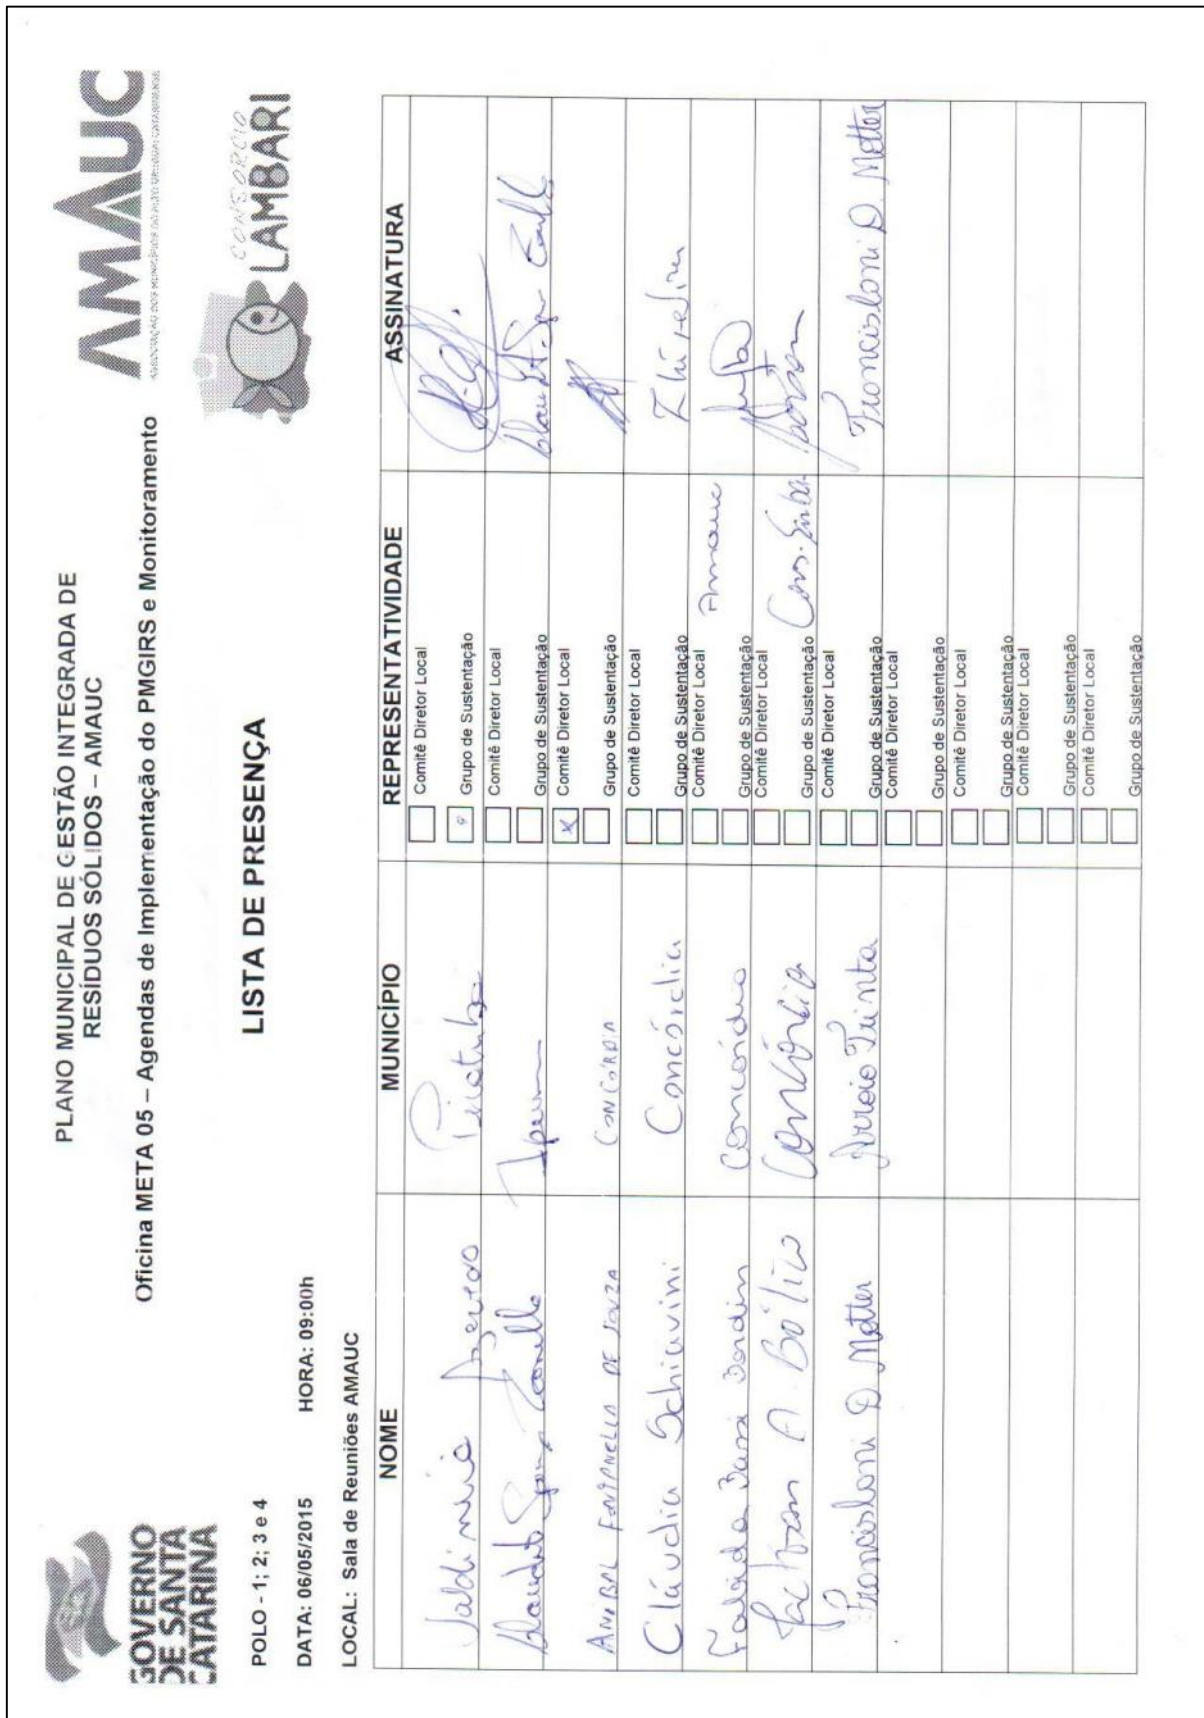 GOVERNO
DE SANTA
CATARINA
PLANO MUNICIPAL DE GESTÃO INTEGRADA DE
RESÍDUOS SÓLIDOS – AMAUC
AMAUC
Oficina META 05 – Agendas de Implementação do PMGIRS e Monitoramento
CONSORCIO
LAMBARI
LISTA DE PRESENÇA
POLO - 1; 2; 3 e 4
DATA: 06/05/2015 HORA: 09:00h
LOCAL: Sala de Reuniões AMAUC
NOME MUNICÍPIO REPRESENTATIVIDADE ASSINATURA
Comitê Diretor Local
Grupo de Sustentação
Comitê Diretor Local
Grupo de Sustentação
ANIBAL DE SOUZA CONCÓRDIA Comitê Diretor Local
Grupo de Sustentação
Cláudia Schiavini Concórdia Comitê Diretor Local
Grupo de Sustentação
Bordin Concórdia Comitê Diretor Local Amauc
Grupo de Sustentação
A. Concórdia Comitê Diretor Local
Grupo de Sustentação
D Matter Arroio Trinta Comitê Diretor Local D. Matter
Grupo de Sustentação
Comitê Diretor Local
Grupo de Sustentação
Comitê Diretor Local
Grupo de Sustentação
Comitê Diretor Local
Grupo de Sustentação
Comitê Diretor Local
Grupo de Sustentação